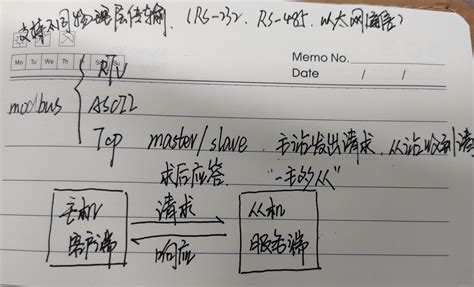 支持不同物理层传输.（RS-232、RS-485、以太网通信）
Memo No.
Mo Tu We Th Fr Sa Su
Date / /
modbus
RTU
ASCII
Tcp master/slave. 主站发出请求, 从站收到请
求后应答. "一主多从"
主机
客户端
请求
响应
从机
服务端